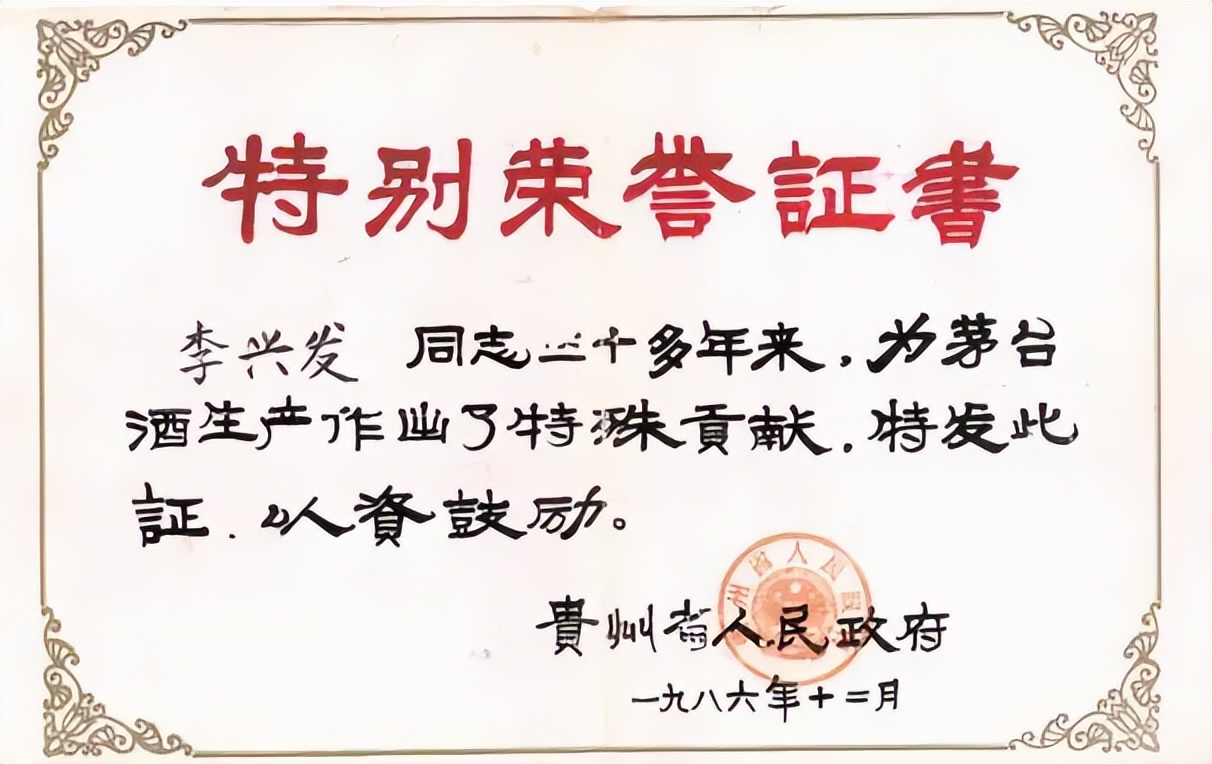 特别荣誉証書
李兴发 同志三十多年来,为茅台
酒生产作出了特殊貢献.特发此
証.以人資鼓励。
貴州省人民政府
一九八六年十二月